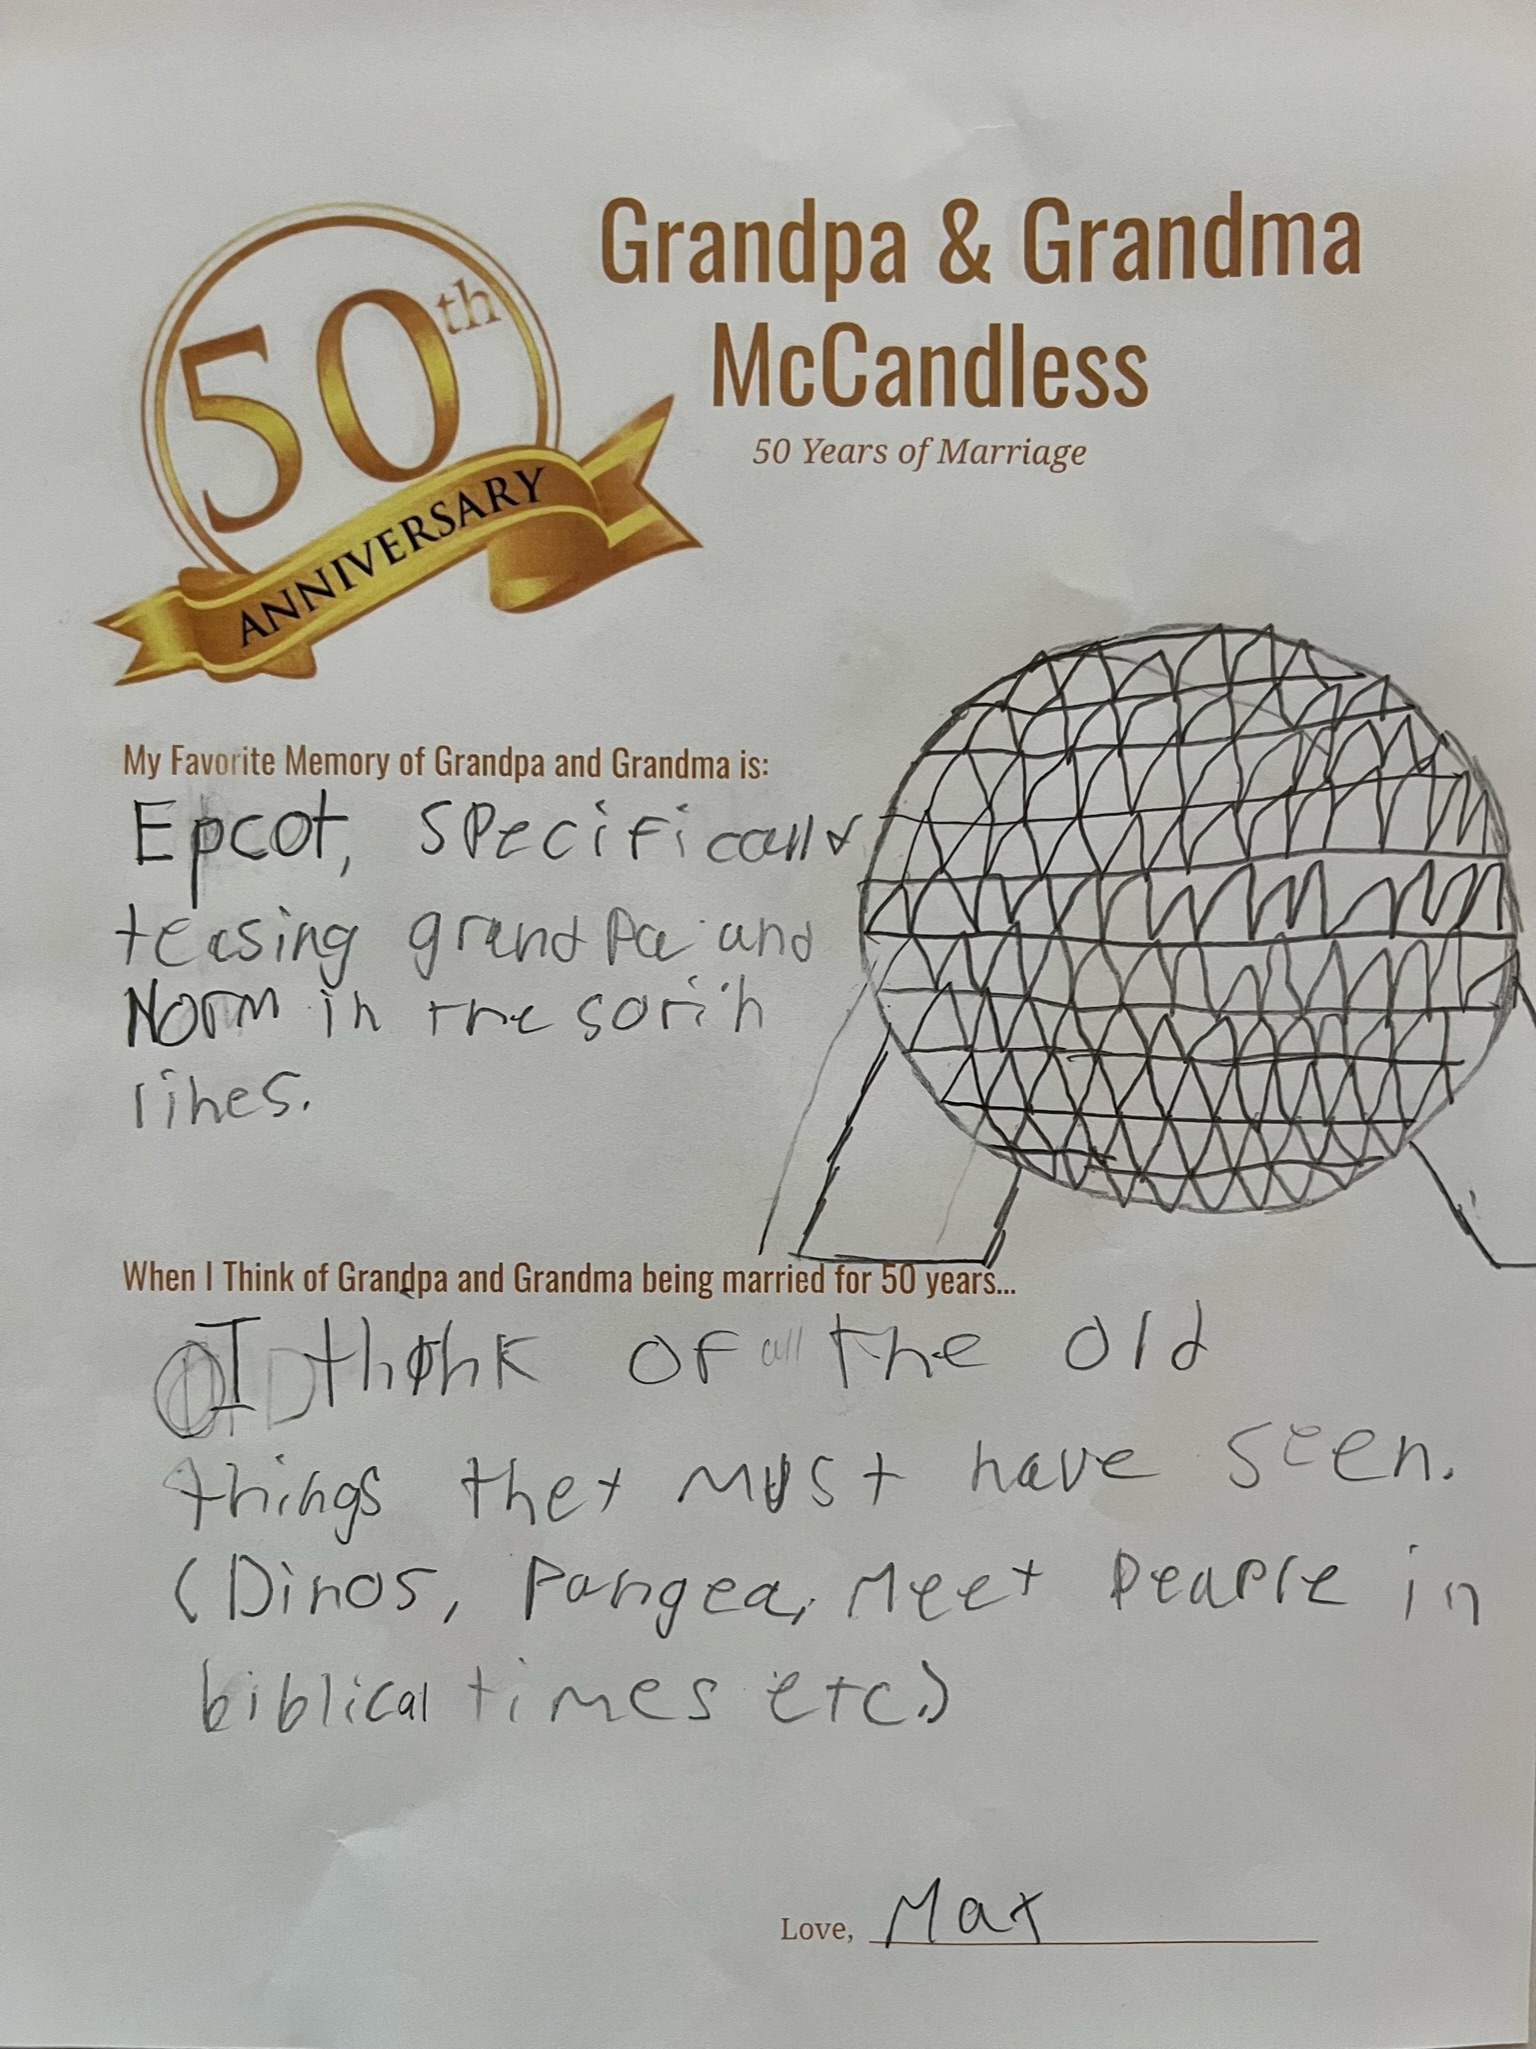 50th
ANNIVERSARY
Grandpa & Grandma
McCandless
50 Years of Marriage
My Favorite Memory of Grandpa and Grandma is:
Epcot, specifically
teasing grandpa and
Norm in the sorin
lines.
When I Think of Grandpa and Grandma being married for 50 years...
I think of all the old
things thet must have seen.
(Dinos, Pangea, Meet peaple in
biblical times etc.)
Love, Max